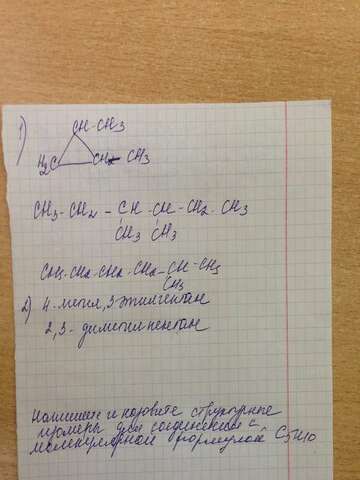 1)
CH-CH3
H2C CH2 - CH3
CH3-CH2 - CH - CH-CH2-CH3
CH3 CH3
CH3-CH2-CH2-CH2-CH-CH3
CH3
2) 4-метил, 3-этилгептан
2,3-диметилпентан
Напишите и назовите структурные
изомеры для соединения с
молекулярной формулой C5H10